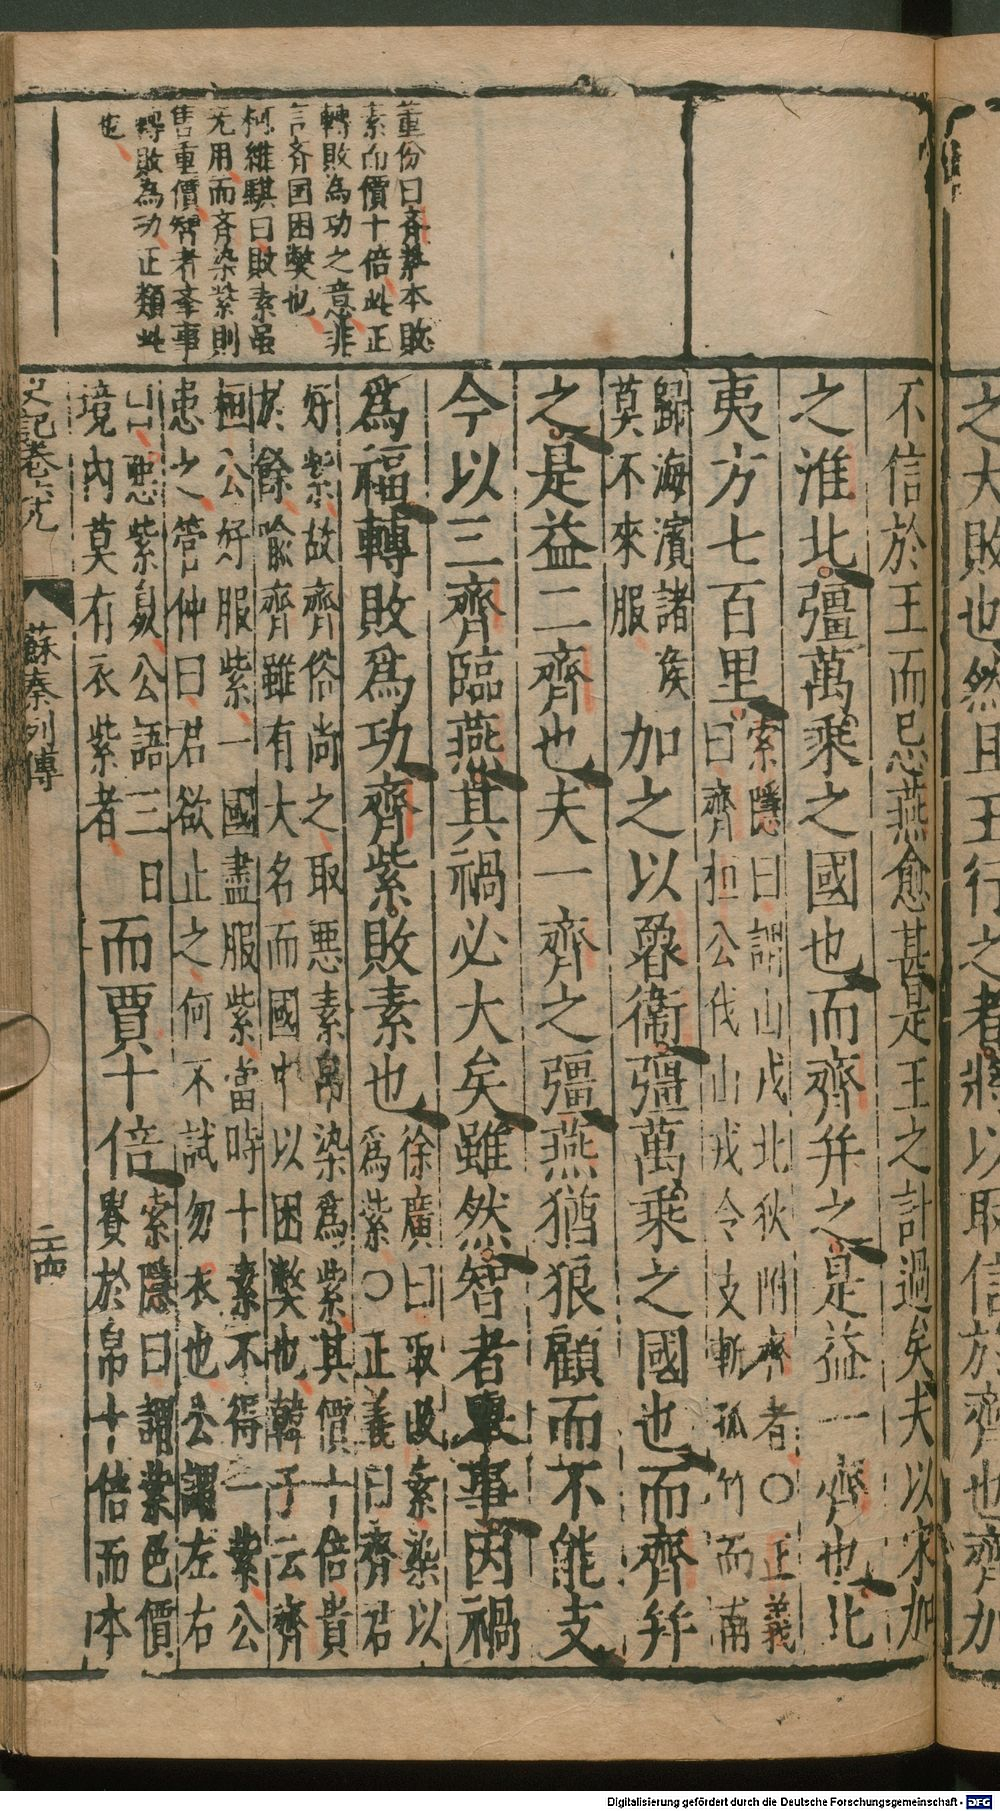 之大敗也然且王行之者將以取信於齊也齊加
不信於王而忌燕愈甚是王之計過矣夫以宋加
之淮北彊萬乘之國也而齊并之是益一齊也北
夷方七百里
索隱曰謂山戎北狄附齊者〇正義
曰齊桓公伐山戎令支斬孤竹而南
歸海濱諸侯
莫不來服
加之以魯衞彊萬乘之國也而齊并
之是益二齊也夫一齊之彊燕猶狼顧而不能支
今以三齊臨燕其禍必大矣雖然智者舉事因禍
爲福轉敗爲功齊紫敗素也
徐廣曰取敗素染以
爲紫〇正義曰齊君
好紫故齊俗尚之取惡素帛染爲紫其價十倍貴
於餘喩齊雖有大名而國中以困弊也韓子云齊
桓公好服紫一國盡服紫當時十素不得一紫公
患之管仲曰君欲止之何不試勿衣也公謂左右
曰惡紫臭公語三日
境內莫有衣紫者
而賈十倍
索隱曰謂紫色價
貴於帛十倍而本
董份曰齊紫本敗
素而價十倍此正
轉敗為功之意非
言齊国困弊也
柯維騏曰敗素虽
无用而齊染紫則
售重價智者舉事
轉敗為功正類此
也
史記卷六九
蘇秦列傳
二十四
Digitalisierung gefördert durch die Deutsche Forschungsgemeinschaft - DFG